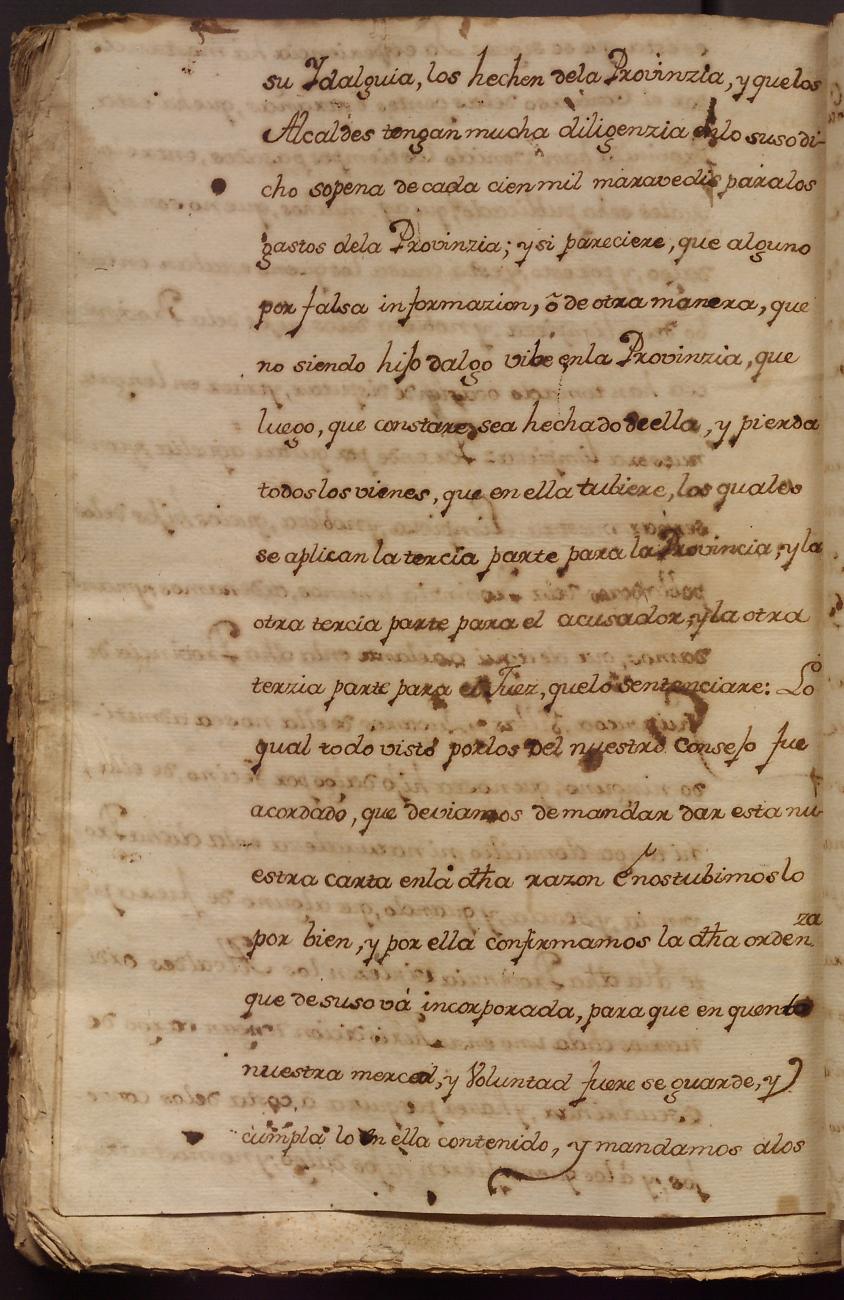 su Ydalguia, los hechen dela Provinzia, y quelos
Alcaldes tengan mucha diligenzia enlo susodi-
cho sopena de cada cien mil maravedis paralos
gastos dela Provinzia; ysi pareciere, que alguno
por falsa informazion, ô de otra manera, que
no siendo hijo dalgo vibe enla Provinzia, que
luego, que constare, sea hechado de ella, y pierda
todos los vienes, que en ella tubiere, los quales
se aplican la tercia parte para la Provincia, y la
otra tercia parte para el acusador, y la otra
terzia parte para el Juez, quelo sentenciare: Lo
qual todo visto porlos del nuestro Consejo fue
acordado, que deviamos demandar dar esta nu-
estra carta enla dha razon é nostubimoslo
por bien, y por ella confirmamos la dha ordenza
que desuso vá incorporada, para que en quento
nuestra merced, y Voluntad fuere se guarde, y
cumpla lo en ella contenido, y mandamos alos